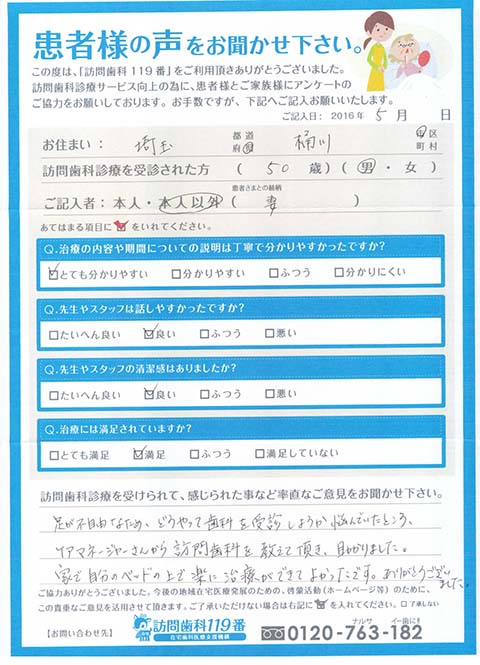 患者様の声をお聞かせ下さい。
この度は、「訪問歯科119番」をご利用頂きありがとうございました。
訪問歯科診療サービス向上の為に、患者様とご家族様にアンケートの
ご協力をお願いしております。お手数ですが、下記へご記入お願いいたします。
ご記入日： 2016年 5月 日
お住まい： 埼玉 都道府県 桶川 市区町村
訪問歯科診療を受診された方 ( 50 歳) (男・女)
ご記入者：本人・本人以外 ( 患者さまとの続柄 妻 )
あてはまる項目に☑をいれてください。
Q.治療の内容や期間についての説明は丁寧で分かりやすかったですか？
☑とても分かりやすい □分かりやすい □ふつう □分かりにくい
Q.先生やスタッフは話しやすかったですか？
□たいへん良い ☑良い □ふつう □悪い
Q.先生やスタッフの清潔感はありましたか？
□たいへん良い ☑良い □ふつう □悪い
Q.治療には満足されていますか？
□とても満足 ☑満足 □ふつう □満足していない
訪問歯科診療を受けられて、感じられた事など率直なご意見をお聞かせ下さい。
足が不自由なため、どうやって歯科を受診しようか悩んでいたところ、
ケアマネージャーさんから訪問歯科を教えて頂き、助かりました。
家で自分のベッドの上で楽に治療ができてよかったです。ありがとうございました。
ご協力ありがとうございました。今後の地域在宅医療発展のための、啓蒙活動(ホームページ等)のために、
この貴重なご意見を活用させて頂きます。ご了承いただけない場合は右記に☑を入れてください。 □了承しない
【お問い合わせ先】 訪問歯科119番 在宅歯科医療支援機構 ナルサ イー歯に! 0120-763-182